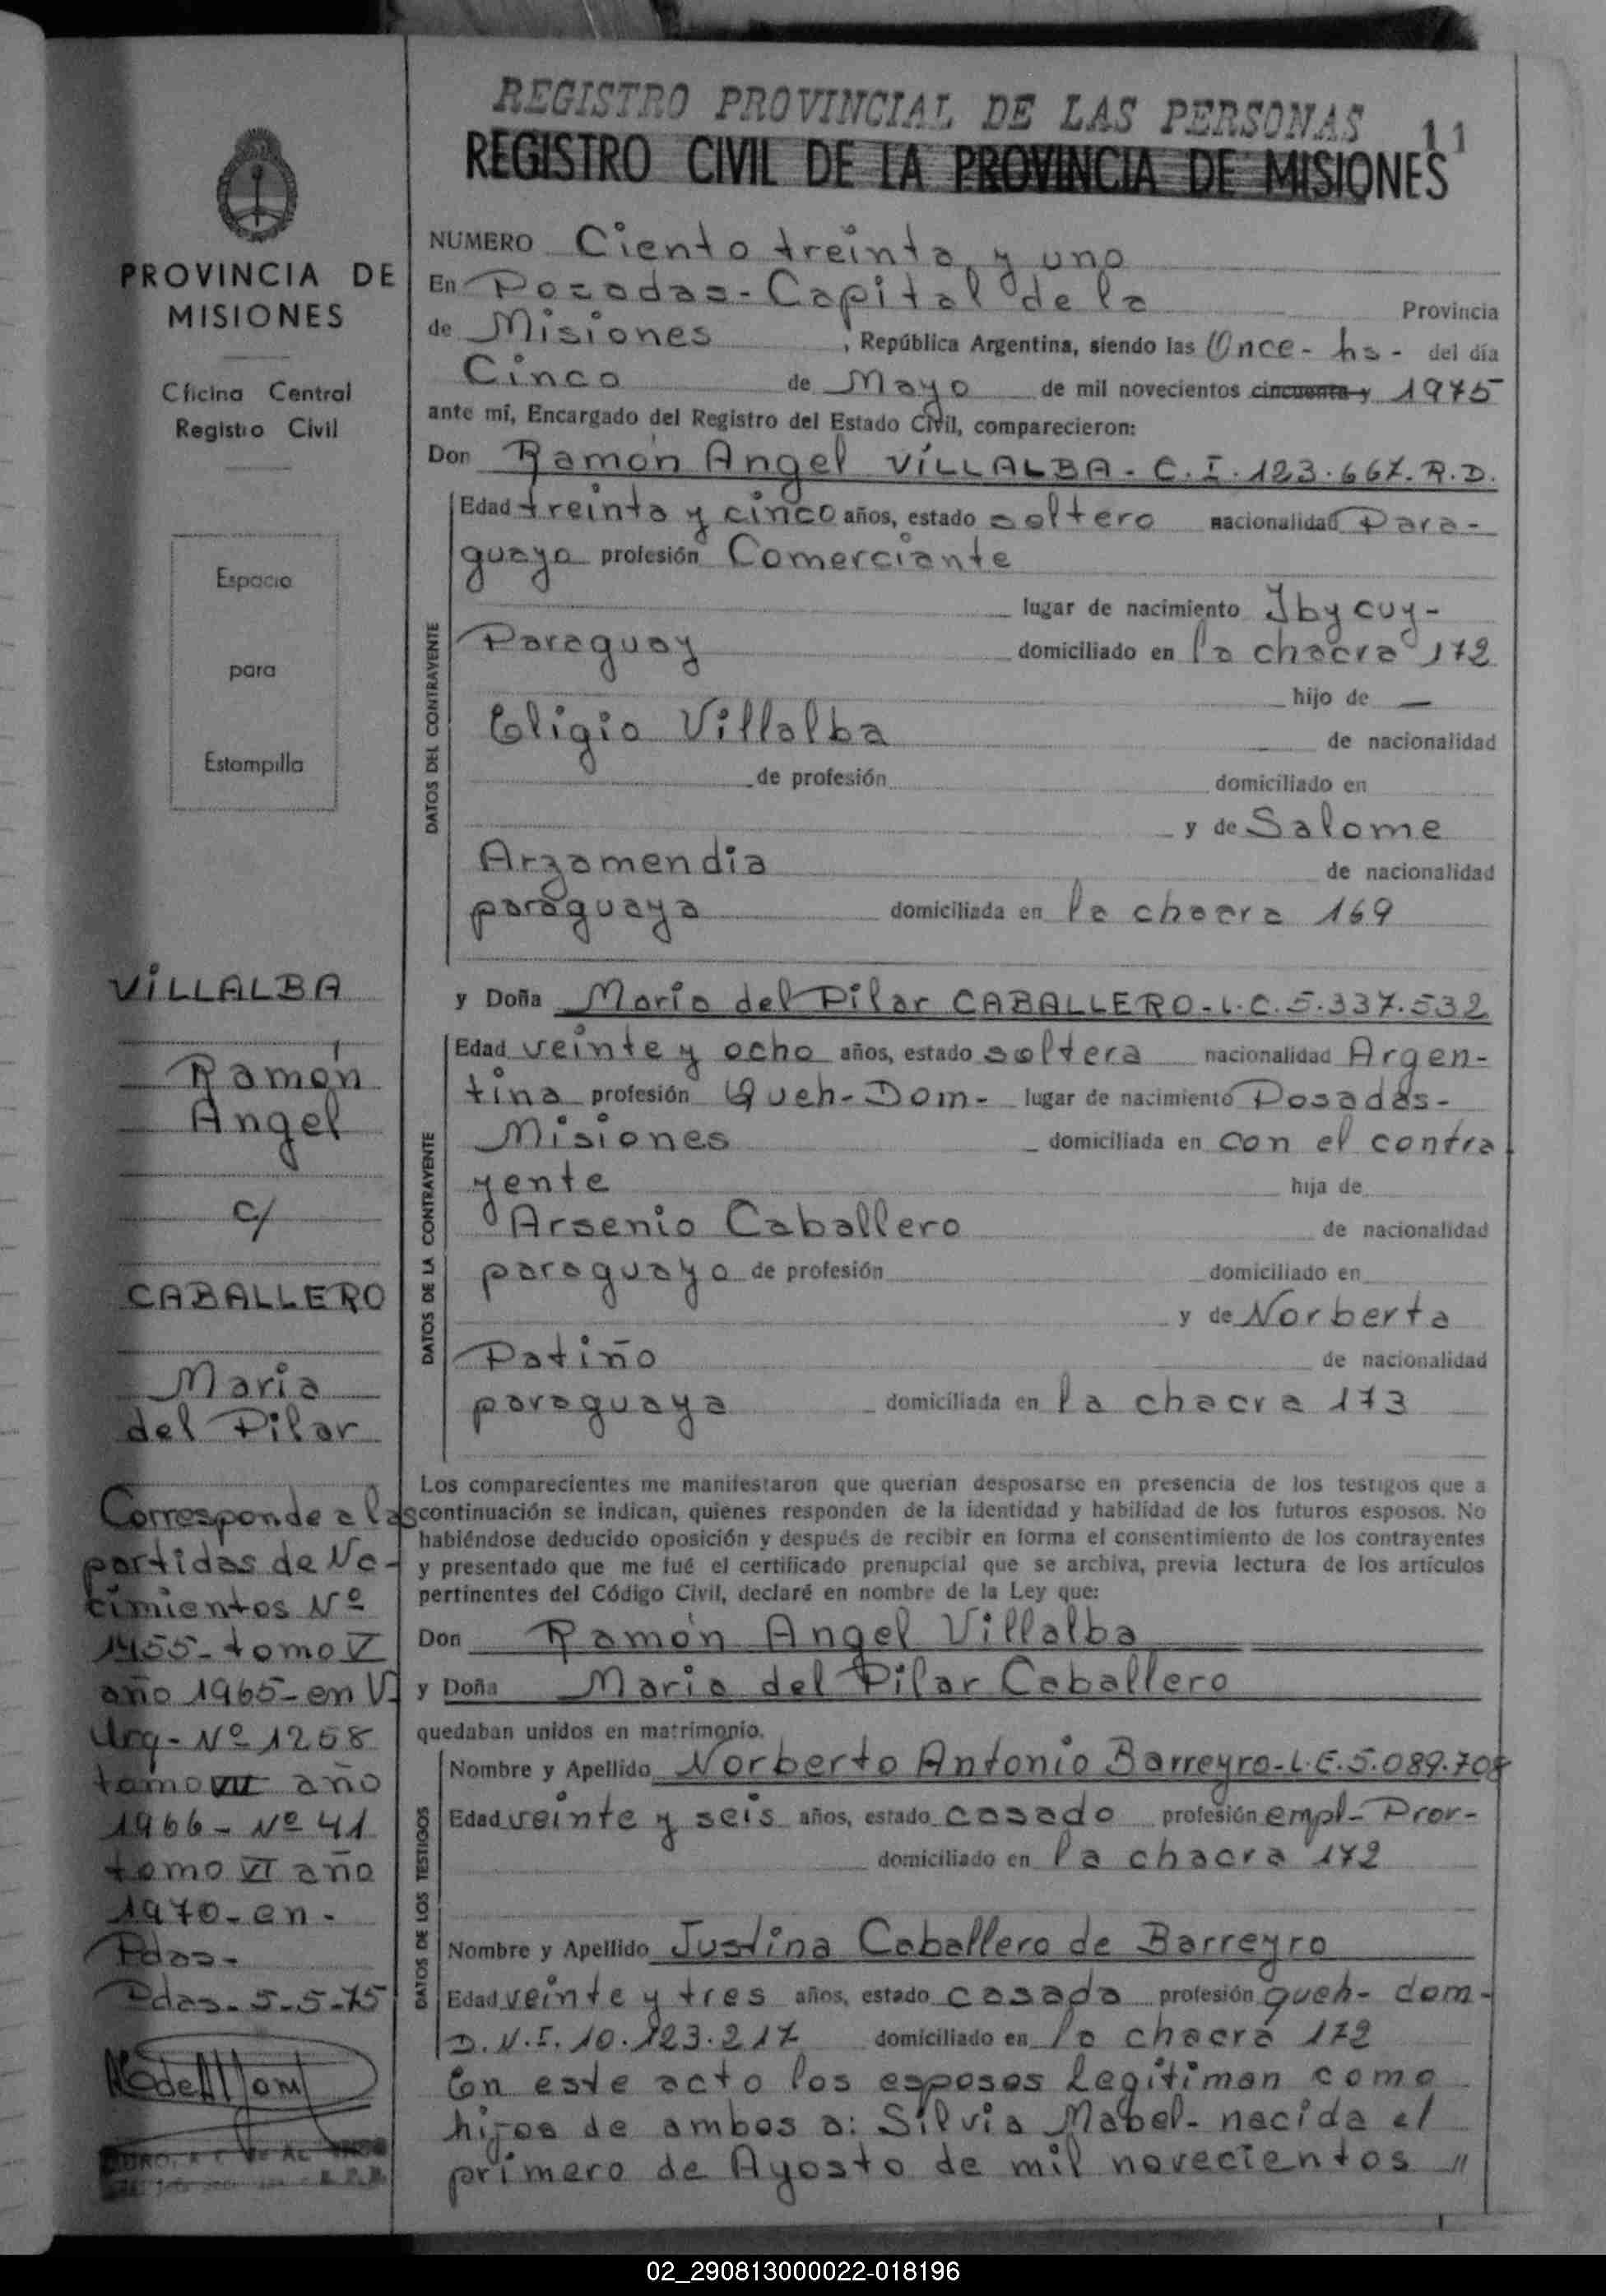 REGISTRO PROVINCIAL DE LAS PERSONAS
11
REGISTRO CIVIL DE LA PROVINCIA DE MISIONES
PROVINCIA DE
MISIONES
Oficina Central
Registro Civil
Espacio
para
Estampilla
VILLALBA
Ramón
Angel
c/
CABALLERO
Maria
del Pilar
Corresponde a las
partidas de Na-
cimientos Nº
1455- tomo V
año 1965- en V.
Urq- Nº 1258
tomo VII año
1966- Nº 41
tomo VI año
1970- en-
Pdas-
Pdas- 5-5-75
NUMERO Ciento treinta y uno
En Posadas- Capital de la Provincia
de Misiones, República Argentina, siendo las Once- hs- del día
Cinco de Mayo de mil novecientos cincuenta y 1975
ante mí, Encargado del Registro del Estado Civil, comparecieron:
Don Ramón Angel VILLALBA- C.I. 123.667. R.D.
DATOS DEL CONTRAYENTE
Edad treinta y cinco años, estado soltero nacionalidad Para-
guayo profesión Comerciante
lugar de nacimiento Ibycuy-
Paraguay domiciliado en la chacra 172
hijo de —
Eligio Villalba de nacionalidad
de profesión domiciliado en
y de Salome
Arzamendia de nacionalidad
paraguaya domiciliada en la chacra 169
y Doña Maria del Pilar CABALLERO- L.C. 5.337.532
DATOS DE LA CONTRAYENTE
Edad veinte y ocho años, estado soltera nacionalidad Argen-
tina profesión Queh-Dom- lugar de nacimiento Posadas-
Misiones domiciliada en con el contra
yente hija de
Arsenio Caballero de nacionalidad
paraguayo de profesión domiciliado en
y de Norberta
Patiño de nacionalidad
paraguaya domiciliada en la chacra 173
Los comparecientes me manifestaron que querían desposarse en presencia de los testigos que a
continuación se indican, quienes responden de la identidad y habilidad de los futuros esposos. No
habiéndose deducido oposición y después de recibir en forma el consentimiento de los contrayentes
y presentado que me fué el certificado prenupcial que se archiva, previa lectura de los artículos
pertinentes del Código Civil, declaré en nombre de la Ley que:
Don Ramón Angel Villalba
y Doña Maria del Pilar Caballero
quedaban unidos en matrimonio.
DATOS DE LOS TESTIGOS
Nombre y Apellido Norberto Antonio Barreyro- L.E. 5.089.708
Edad veinte y seis años, estado casado profesión empl- Prov-
domiciliado en la chacra 172
Nombre y Apellido Justina Caballero de Barreyro
Edad veinte y tres años, estado casada profesión queh- dom-
D.N.I. 10.123.217 domiciliado en la chacra 172
En este acto los esposos legitiman como
hijos de ambos a: Silvia Mabel- nacida el
primero de Agosto de mil novecientos "
02_290813000022-018196